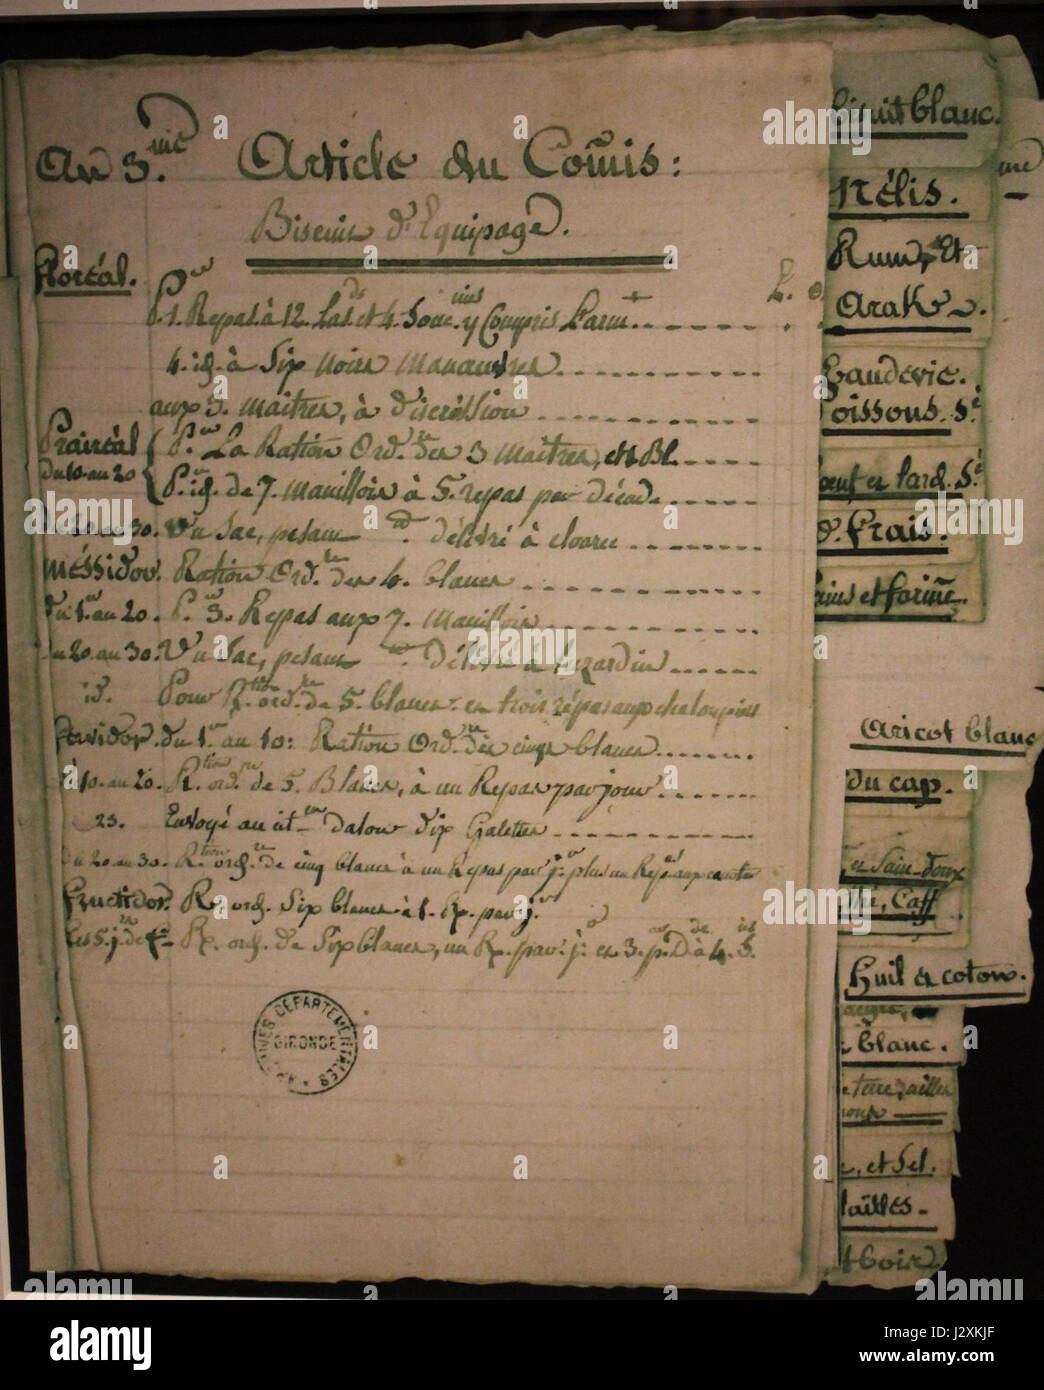 An 3.me Article du Comis:
Biscuit d'Equipage.
Floréal.
P.r 1. Repas à 12. Las.ds et 4. Souc. y Compris L'arm.t
4. id. à Six noirs manœuvres
aux 3. maitres, à discrêssion
Prairéal
du 10. au 20 P.r La Ration Ord.re des 3 maitres, et Bl.
P. id. de 7. mauillois à 5. repas par décade
du 20 au 30. Un Sac, pesant délivré à
Méssidor. Ration Ord.re des 4. blancs
du 1.er au 20. P.r 3. Repas aux 7. mauillois
du 20. au 30. Un Sac, pesant Délivré à Luzardin
id. Pour R.tion ord.re de 5. blancs en trois répas aux chaloupiers
Fervidor. du 1.er au 10: Ration Ord.re des cinq blancs
d. 10. au 20. R.tion ord.re de 5. Blancs, à un Repas par jour
23. Envoyé au cit.en Datour dix Galettes
du 20 au 30. R.tion ord.re de cinq blancs à un Repas par j. plus un Repas
Fructidor. R. ord. Six blancs à 1. Rp. par j.
Les 5. j. de R. ord. de Six blancs, un R. par j. et 3. p. D à 4.
ARCHIVES DEPARTEMENTALES
GIRONDE
biscuit blanc.
Nélis.
Rum, Et
Arak
Eaudevie.
Poissons. S.é
Bœuf et Lard. S.é
d.o Frais.
Pains et farine
Aricot blanc
du cap.
et Sain-doux
thé, Caff
Huil et coton.
blanc.
terre, ailles
et Sel.
ailles.
alamy
alamy
Image ID: J2XKJF
www.alamy.com